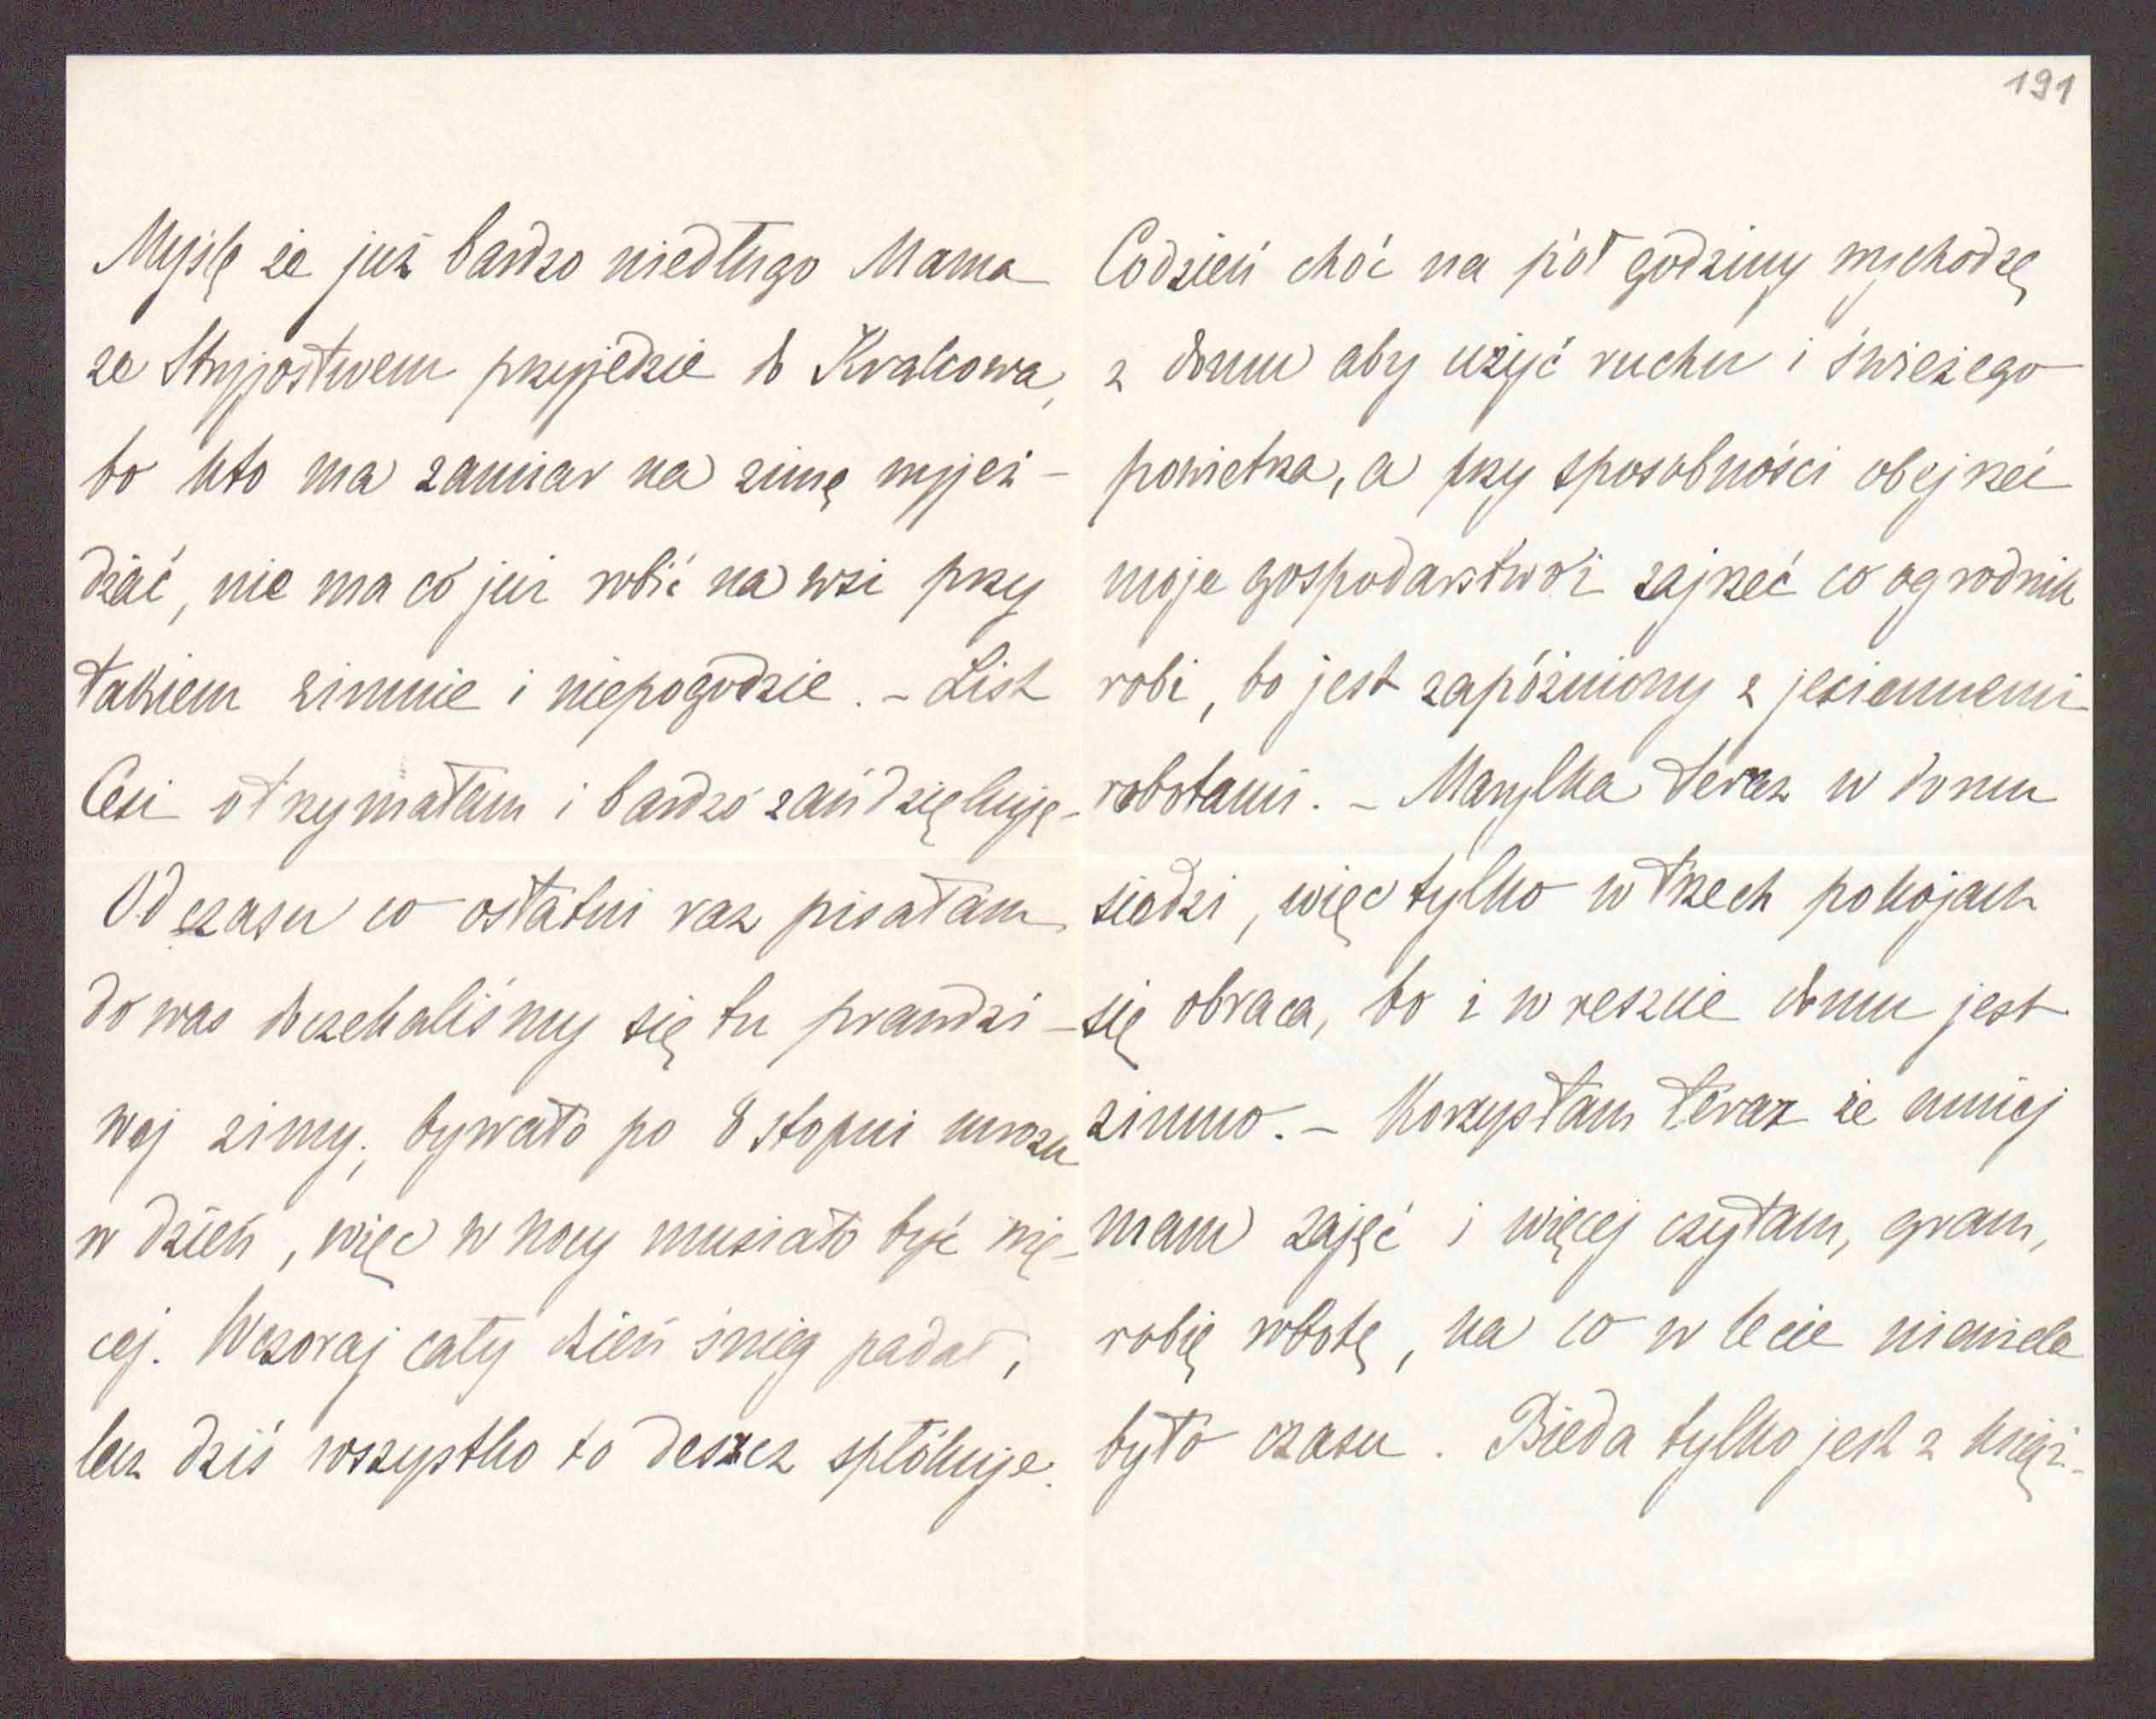 191
Myślę że już bardzo niedługo Mama
ze Stryjostwem przyjedzie do Krakowa,
bo kto ma zamiar na zimę wyjeż-
dżać, nie ma co już robić na wsi przy
takiem zimnie i niepogodzie. - List
Cesi otrzymałam i bardzo zań dziękuję -
Od czasu co ostatni raz pisałam
do was doczekaliśmy się tu prawdzi-
wej zimy, bywało po 8 stopni mrozu
w dzień, więc w nocy musiało być wię-
cej. Wczoraj cały dzień śnieg padał,
lecz dziś wszystko to deszcz spłókuje.
Codzień choć na pół godziny wychodzę
z domu aby użyć ruchu i świeżego
powietrza, a przy sposobności obejrzeć
moje gospodarstwo i zajrzeć co ogrodnik
robi, bo jest zapóźniony z jesiennemi
robotami. - Marylka teraz w domu
siedzi, więc tylko w trzech pokojach
się obraca, bo i w reszcie domu jest
zimno. - Korzystam teraz że mniej
mam zajęć i więcej czytam, gram,
robię robotę, na co w lecie niewiele
było czasu. Bieda tylko jest z księż-